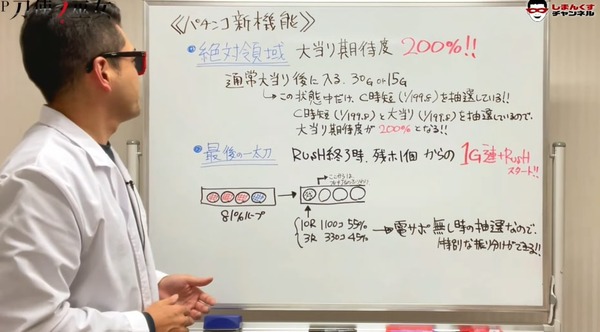 しまんくす
チャンネル
《パチンコ新機能》
絶対領域 大当り期待度 200%!!
通常大当り後に入る、30G or 15G
→この状態中だけ、C時短(1/199.8)を抽選している!!
C時短(1/199.8)と大当り(1/199.8)を抽選しているので、
大当り期待度が200%となる!!
最後の一太刀 RUSH終了時、残ホ1個からの 1G連+RUSH
スタート!!
81%ループ
10R 1100コ 55%
3R 330コ 45%
→電サポ無し時の抽選なので、
特別な振り分けができる!!